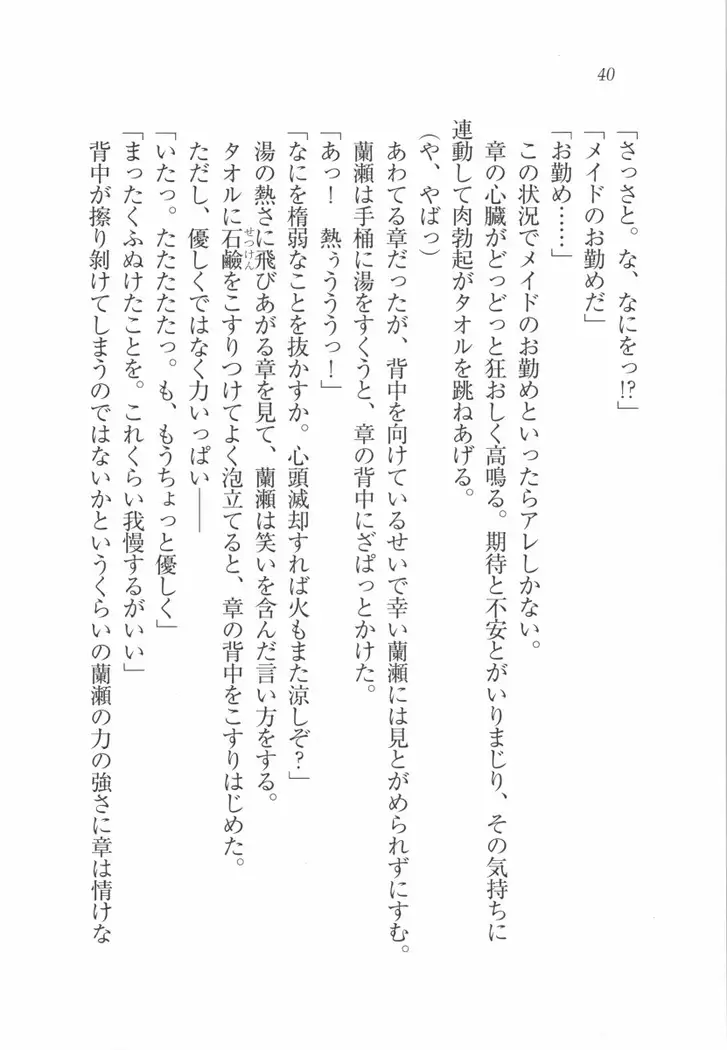 40
「さっさと。な、なにをっ!?」
「メイドのお勤めだ」
「お勤め……」
この状況でメイドのお勤めといったらアレしかない。
章の心臓がどっどっと狂おしく高鳴る。期待と不安とがいりまじり、その気持ちに
連動して肉勃起がタオルを跳ねあげる。
(や、やばっ)
あわてる章だったが、背中を向けているせいで幸い蘭瀬には見とがめられずにすむ。
蘭瀬は手桶に湯をすくうと、章の背中にざぱっとかけた。
「あっ! 熱ぅううっ!」
「なにを惰弱なことを抜かすか。心頭滅却すれば火もまた涼しぞ?」
湯の熱さに飛びあがる章を見て、蘭瀬は笑いを含んだ言い方をする。
タオルに石鹼せっけんをこすりつけてよく泡立てると、章の背中をこすりはじめた。
ただし、優しくではなく力いっぱい――
「いたっ。たたたたたっ。も、もうちょっと優しく」
「まったくふぬけたことを。これくらい我慢するがいい」
背中が擦り剝けてしまうのではないかというくらいの蘭瀬の力の強さに章は情けな